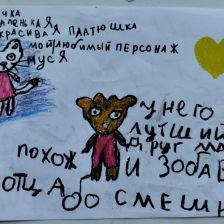 ЧКА
АЛЕНЬКАЯ
КРАСИВАЯ ПЛАТЮШКА
МОЙ ЛЮБИМЫЙ ПЕРСОНАЖ
МУСЯ
У НЕГО
ЛУТШИЙ
ДРУГ МА
ПОХОЖ
И ЗООБЕ
ОТЦА
СМЕШ